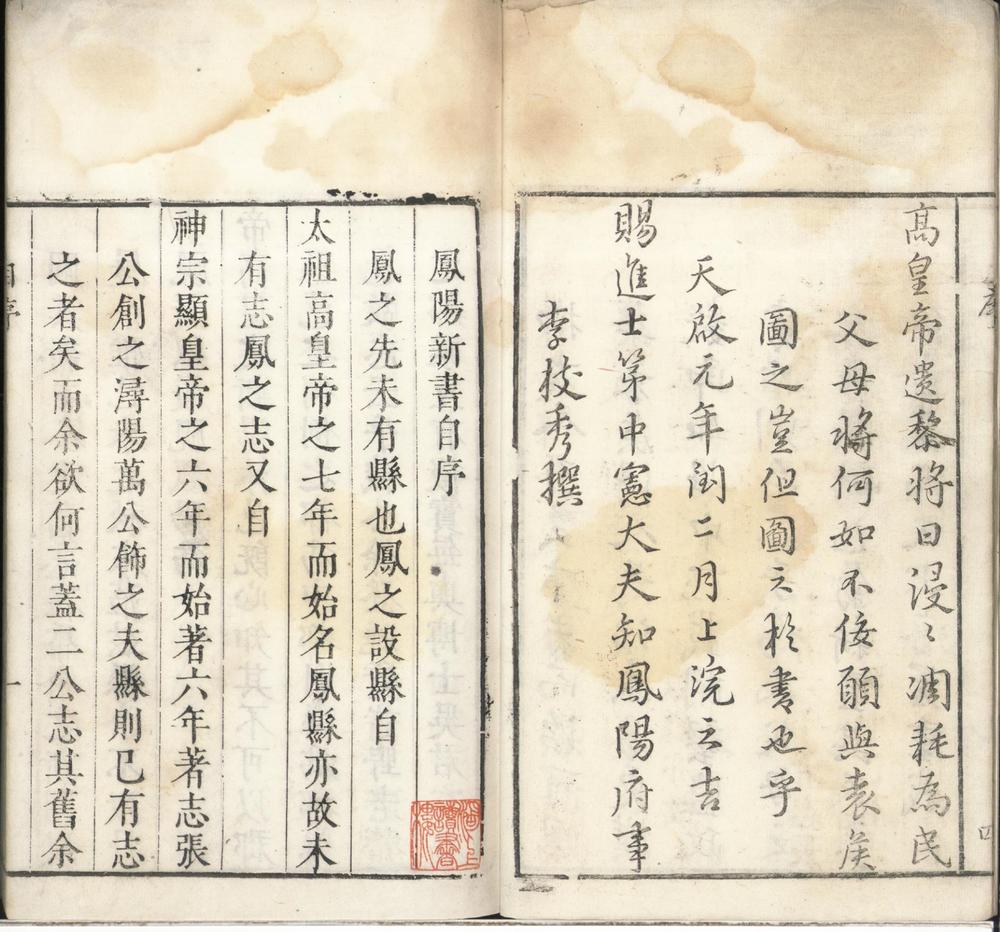 序
四
高皇帝遺黎將日浸〻凋耗為民
父母將何如不佞願與袁侯
圖之豈但圖之於書也乎
天啟元年閏二月上浣之吉
賜進士第中憲大夫知鳳陽府事
李枝秀撰
鳳陽新書自序
鳳之先未有縣也鳳之設縣自
太祖高皇帝之七年而始名鳳縣亦故未
有志鳳之志又自
神宗顯皇帝之六年而始著六年著志張
公創之潯陽萬公飾之夫縣則已有志
之者矣而余欲何言蓋二公志其舊余
自序
一